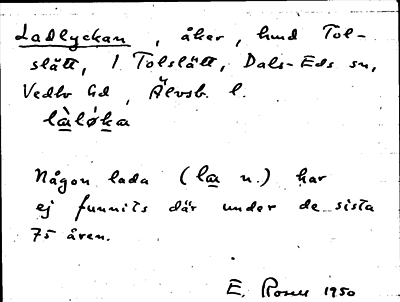 Ladlyckan, åker, hmd Tol-
slätt, 1 Tolslätt, Dals-Eds sn,
Vedbo hd, Älvsb. l.
làløka
Någon lada (la n.) har
ej funnits där under de sista
75 åren.
E. Rosell 1950